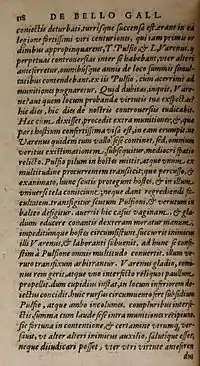 118 DE BELLO GALL.
coniectis deturbati, turrisque succensa est. Erant in ea
legione fortissimi viri centuriones, qui iam primis or-
dinibus appropinquarent, T. Pulfio, & L. Varenus. hi
perpetuas controuersias inter se habebant, vter alteri
anteferretur, omnibusque annis de loco summis simul-
tatibus contendebant. ex iis Pulfio, cum acerrimè ad
munitiones pugnaretur, Quid dubitas, inquit, Vare-
ne? aut quem locum probandæ virtutis tuæ expectas?
hic dies, hic dies de nostris controuersiis iudicabit.
Hæc cùm dixisset, procedit extra munitiones: & quæ
pars hostium confertissima visa est, in eam erumpit. ne
Varenus quidem tum vallo sese continet, sed, omnium
veritus existimationem, subsequitur, mediocri spatio
relicto. Pulfio pilum in hostes mittit, atque vnum, ex
multitudine procurrentem transiicit; quo percusso, &
exanimato, hunc scutis protegunt hostes, & in illum
vniuersi tela coniiciunt, neque dant regrediendi fa-
cultatem. transfigitur scutum Pulfioni, & verutum in
balteo defigitur. auertit hic casus vaginam, & gla-
dium educere conantis dexteram moratur manum,
impeditumque hostes circumsistunt. succurrit inimicus
illi Varenus, & laboranti subuenit. ad hunc se confe-
stim à Pulfione omnis multitudo conuertit. illum ve-
ruto transfixum arbitrantur. Varenus gladio, comi-
nus rem gerit, atque vno interfecto reliquos paullum
propellit. dum cupidius instat, in locum inferiorem de-
iectus concidit. huic rursus circumuento fert subsidium
Pulfio, atque ambo incolumes, compluribus interfe-
ctis, summa cum laude sese intra munitiones recipiunt.
sic fortuna in contentione, & certamine vtrumque ver-
sauit, vt alter alteri inimicus auxilio, salutique esset,
neque diiudicari posset, vter vtri virtute anteferen